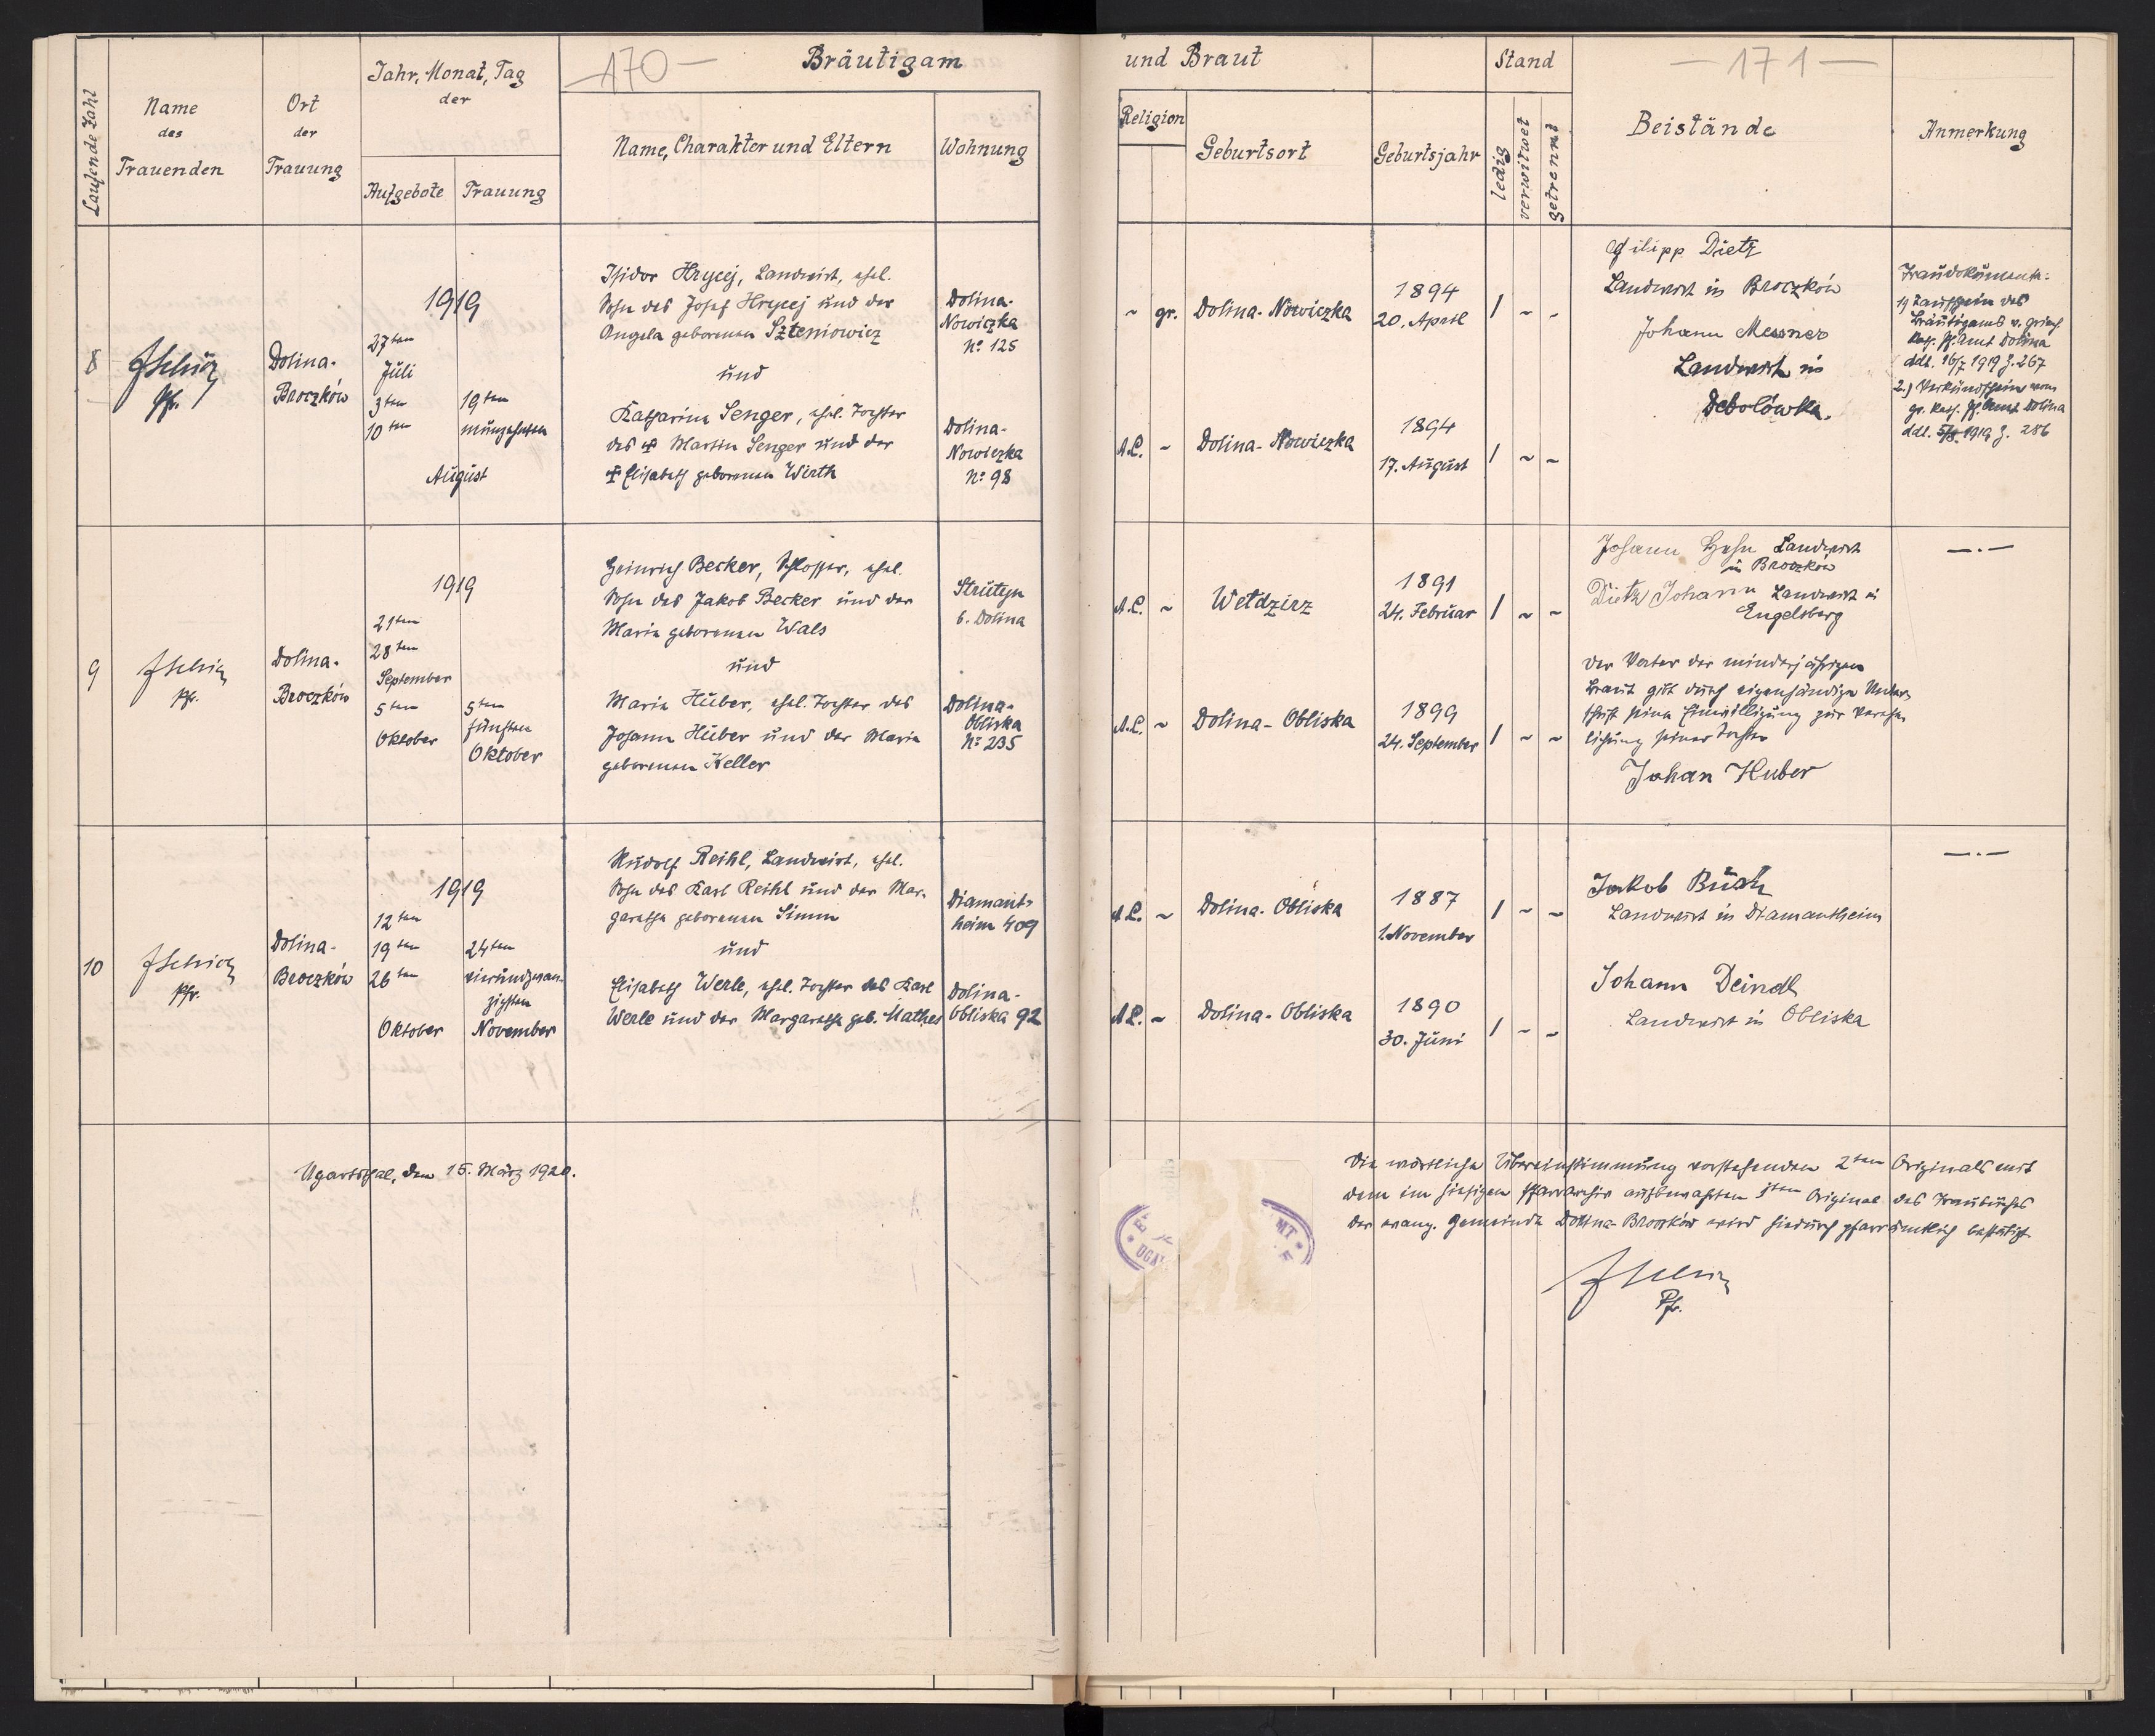 170
Bräutigam
Laufende Zahl
Name
des
Trauenden
Ort
der
Trauung
Jahr, Monat, Tag
der
Aufgebote
Trauung
Name, Charakter und Eltern
Wohnung
8
Pfr.
Dolina-
Broczków
1919
27ten
Juli
3ten
10ten
19ten
neunzehnten
August
Isidor Hrycej, Landwirt, ehel.
Sohn des Josef Hrycej und der
Angela geborenen Szteniowicz
und
Katharina Senger, ehel. Tochter
des ✝ Martin Senger und der
✝ Elisabeth geborenen Wirth
Dolina-
Nowiczka
No 125
Dolina-
Nowiczka
No 98
9
Pfr.
Dolina-
Broczków
1919
21ten
28ten
September
5ten
Oktober
5ten
fünften
Oktober
Heinrich Becker, Schlosser, ehel.
Sohn des Jakob Becker und der
Maria geborenen Wals
und
Maria Huber, ehel. Tochter des
Johann Huber und der Maria
geborenen Keller
Strutyn
b. Dolina
Dolina-
Obliska
No 235
10
Pfr.
Dolina-
Broczków
1919
12ten
19ten
26ten
Oktober
24ten
vierundzwan-
zigsten
November
Rudolf Reihl, Landwirt, ehel.
Sohn des Karl Reihl und der Mar-
garethe geborenen Simm
und
Elisabeth Werle, ehel. Tochter des Karl
Werle und der Margarethe geb. Mathes
Diamant-
heim 409
Dolina-
Obliska 92
Ugartsthal, den 15. März 1920.
und Braut
Stand
171
Religion
Geburtsort
Geburtsjahr
ledig
verwitwet
getrennt
Beistände
Anmerkung
~ gr. Dolina-Nowiczka
1894
20. April
/ ~ ~
A.C. ~ Dolina-Nowiczka
1894
17. August
/ ~ ~
Filipp Dietz
Landwirt in Broczków
Johann Messner
Landwirt in
Debolówka.
Traudokumente:
1) Taufschein des
Bräutigams v. griech.
kath. Pf. Amt Dolina
ddt. 16/7 1919 Z. 267
2.) Verkündschein vom
gr. kath. Pf. Amt Dolina
ddt. 5/8 1919 Z. 286
A.C. ~ Wełdzirz
1891
24. Februar
/ ~ ~
A.C. ~ Dolina-Obliska
1899
24. September
/ ~ ~
Johann Hehn Landwirt
in Broczków
Dietz Johann Landwirt in
Engelsberg
Der Vater der minderjährigen
Braut gibt durch eigenhändige Unter-
schrift seine Einwilligung zur Vereh-
lichung seiner Tochter
Johan Huber
—.—
A.C. ~ Dolina-Obliska
1887
1. November
/ ~ ~
A.C. ~ Dolina-Obliska
1890
30. Juni
/ ~ ~
Jakob
Landwirt in Diamantheim
Johann Deindl
Landwirt in Obliska
—.—
Die wörtliche Übereinstimmung vorstehenden 2ten Originals mit
dem im hiesigen Pfarrarchiv aufbewahrten 1ten Original des Traubuches
der evang. Gemeinde Dolina-Broczków wird hiedurch pfarrämtlich bestätigt
Pfr.